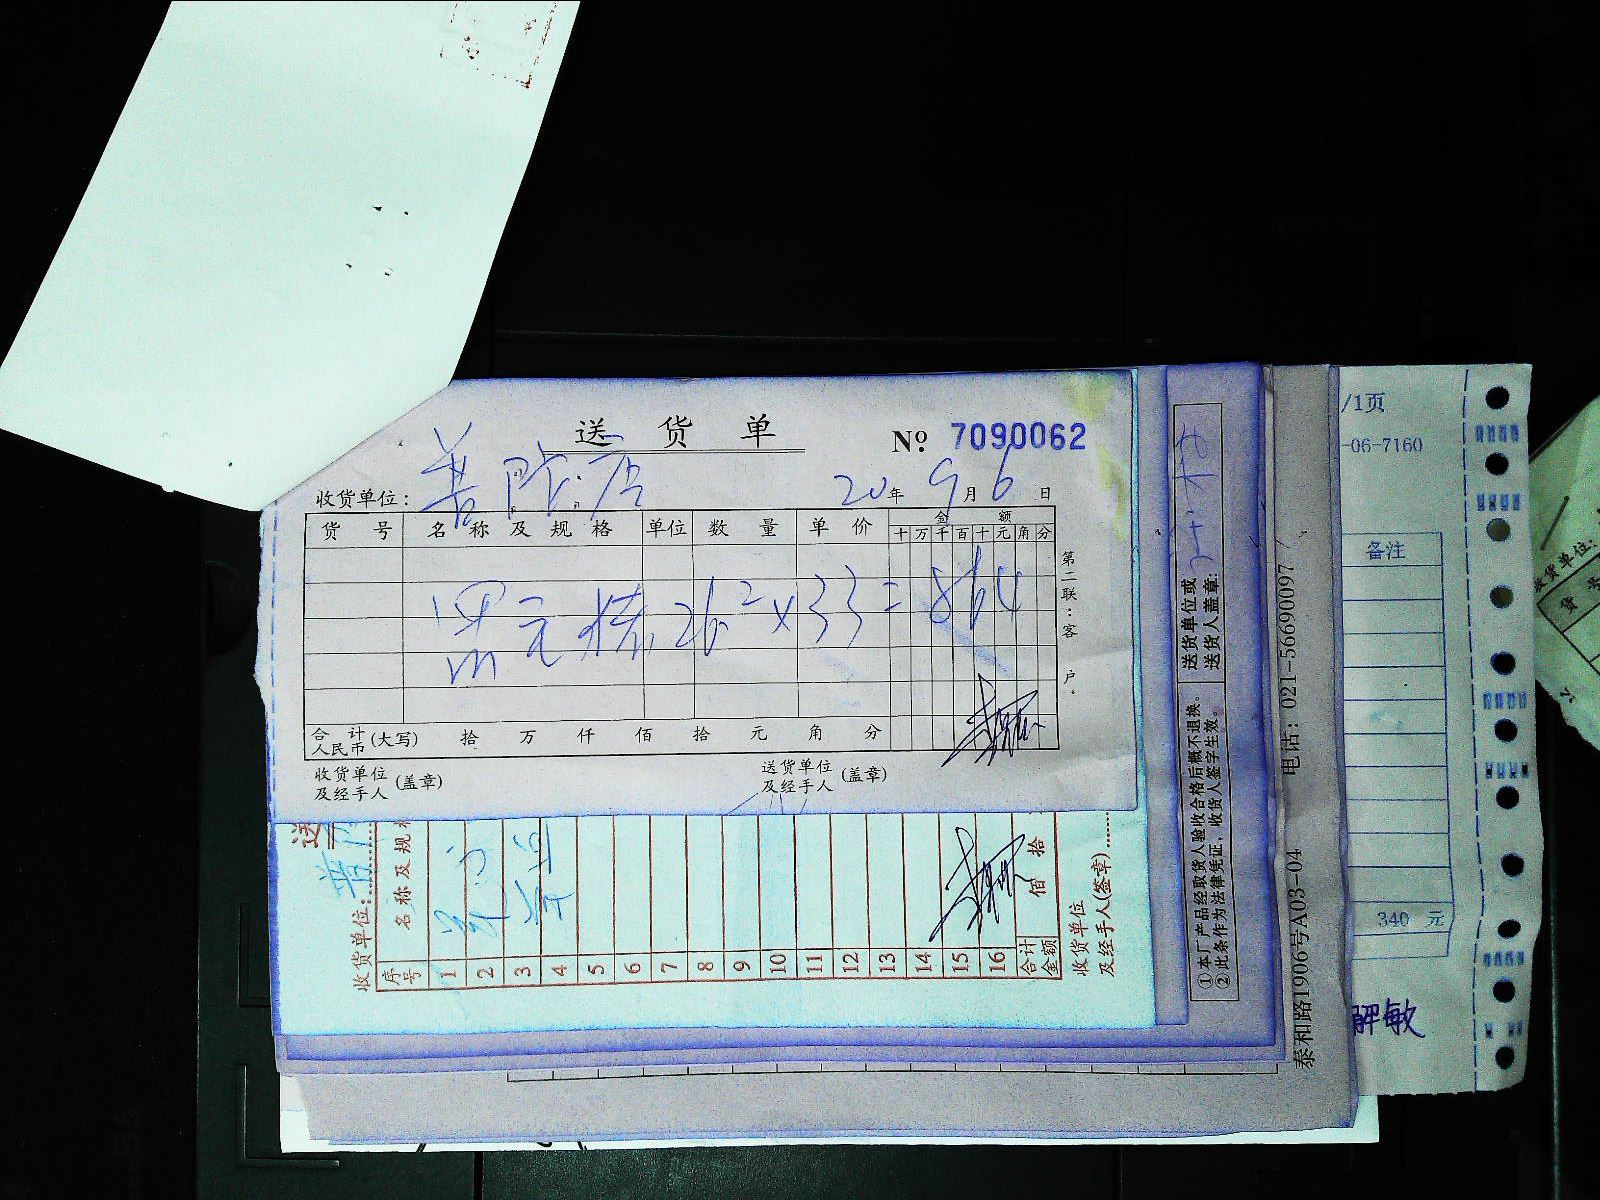 送货单
№ 7090062
收货单位: 普陀店 20年9月6日
货号 名称及规格 单位 数量 单价 金额
十万千百十元角分
26.2×33=864
第二联:客户。
合计人民币(大写) 拾 万 仟 佰 拾 元 角 分
收货单位及经手人(盖章) 送货单位及经手人(盖章)
送
收货单位: 普
序号 名称及规
1
2
3
4
5
6
7
8
9
10
11
12
13
14
15
16
合计金额 佰 拾
收货单位及经手人(签章)
送货单位或送货人盖章:
①本厂产品经取货人验收合格后概不退换。
②此条作为法律凭证，收货人签字生效。
泰和路1906号A03-04 电话：021-56690097
/1页
-06-7160
备注
340 元
解敏
收货单位:
货号